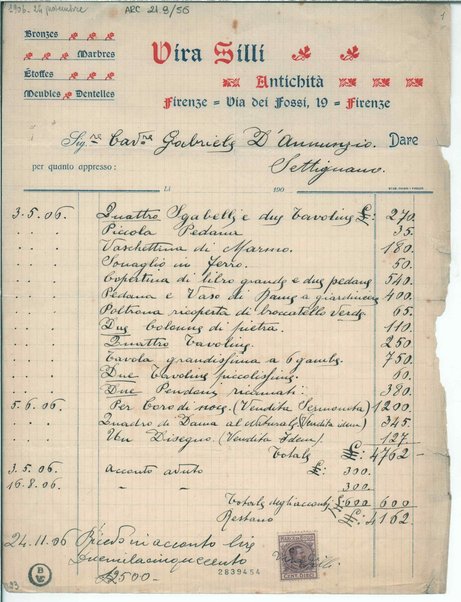 1906. 24 novembre
ARC 21.9/56
1
Bronzes
Marbres
Étoffes
Meubles Dentelles
Vira Silli
Antichità
Firenze = Via dei Fossi, 19 = Firenze
Sig.re Cav.re Gabriele D'Annunzio. Dare
Settignano.
per quanto appresso:
Lì 190
3.5.06. Quattro Sgabelli e due Tavoline £: 270.
. . . Piccola Pedana 35.
. . . Vaschettina di Marmo. 180.
. . . Sonaglio in ferro. 50.
. . . Copertina di libro grande e due pedane 540.
. . . Pedana e Vaso di Rame a giardiniera 400.
. . . Poltrona ricoperta di broccatello verde 65.
. . . Due Colonne di pietra. 110.
. . . Quattro Tavoline. 250
. . . Tavola grandissima a 6 gambe. 750.
. . . Due Tavoline piccolissime. 60.
. . . Due Pendoni ricamati. 380.
5.6.06. Per Coro di noce. (Vendita Sermoneta) 1200
. . . Quadro di Dama al Naturale (Vendita idem) 345.
. . . Un Disegno. (Vendita Idem). 127.
Totale £: 4762
3.5.06. Acconto avuto £: 300.
16.8.06. " " 300.
Totale degli acconti £: 600 600
Restano £: 4162
24.11.06 Ricevo in acconto lire
Duemilacinquecento
£2500-
MARCA DA BOLLO
CENT. DIECI
2839454
B
W
23